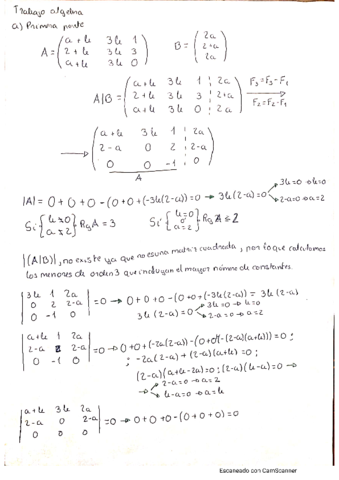 Trabajo algebra
a) Primera parte
A = ( a+k 3k 1 ; 2+k 3k 3 ; a+k 3k 0 ) B = ( 2a ; 2+a ; 2a )
A|B = ( a+k 3k 1 | 2a ; 2+k 3k 3 | 2+a ; a+k 3k 0 | 2a ) F₃=F₃-F₁ → F₂=F₂-F₁
→ ( a+k 3k 1 | 2a ; 2-a 0 2 | 2-a ; 0 0 -1 | 0 )
A
|A| = 0+0+0-(0+0+(-3k(2-a))=0 → 3k(2-a)=0 → 3k=0 → k=0 → 2-a=0 → a=2
Si { k≠0 a≠2 } Rg A = 3 Si { k=0 a=2 } Rg A ≤ 2
|(A|B)|, no existe ya que no es una matriz cuadrada, por lo que calculamos
los menores de orden 3 que incluyan el mayor número de constantes.
| 3k 1 2a ; 0 2 2-a ; 0 -1 0 | = 0 → 0+0+0-(0+0+(-3k(2-a)) = 3k(2-a)
3k(2-a)=0 → 3k=0 → k=0 → 2-a=0 → a=2
| a+k 1 2a ; 2-a 2 2-a ; 0 -1 0 | = 0 → 0+0+(-2a(2-a))-(0+0+(-(2-a)(a+k))=0 ;
; -2a(2-a)+(2-a)(a+k)=0 ;
(2-a)(a+k-2a)=0 ; (2-a)(k-a)=0 →
→ 2-a=0 → a=2
→ k-a=0 → a=k
| a+k 3k 2a ; 2-a 0 2-a ; 0 0 0 | = 0 → 0+0+0-(0+0+0)=0
Escaneado con CamScanner